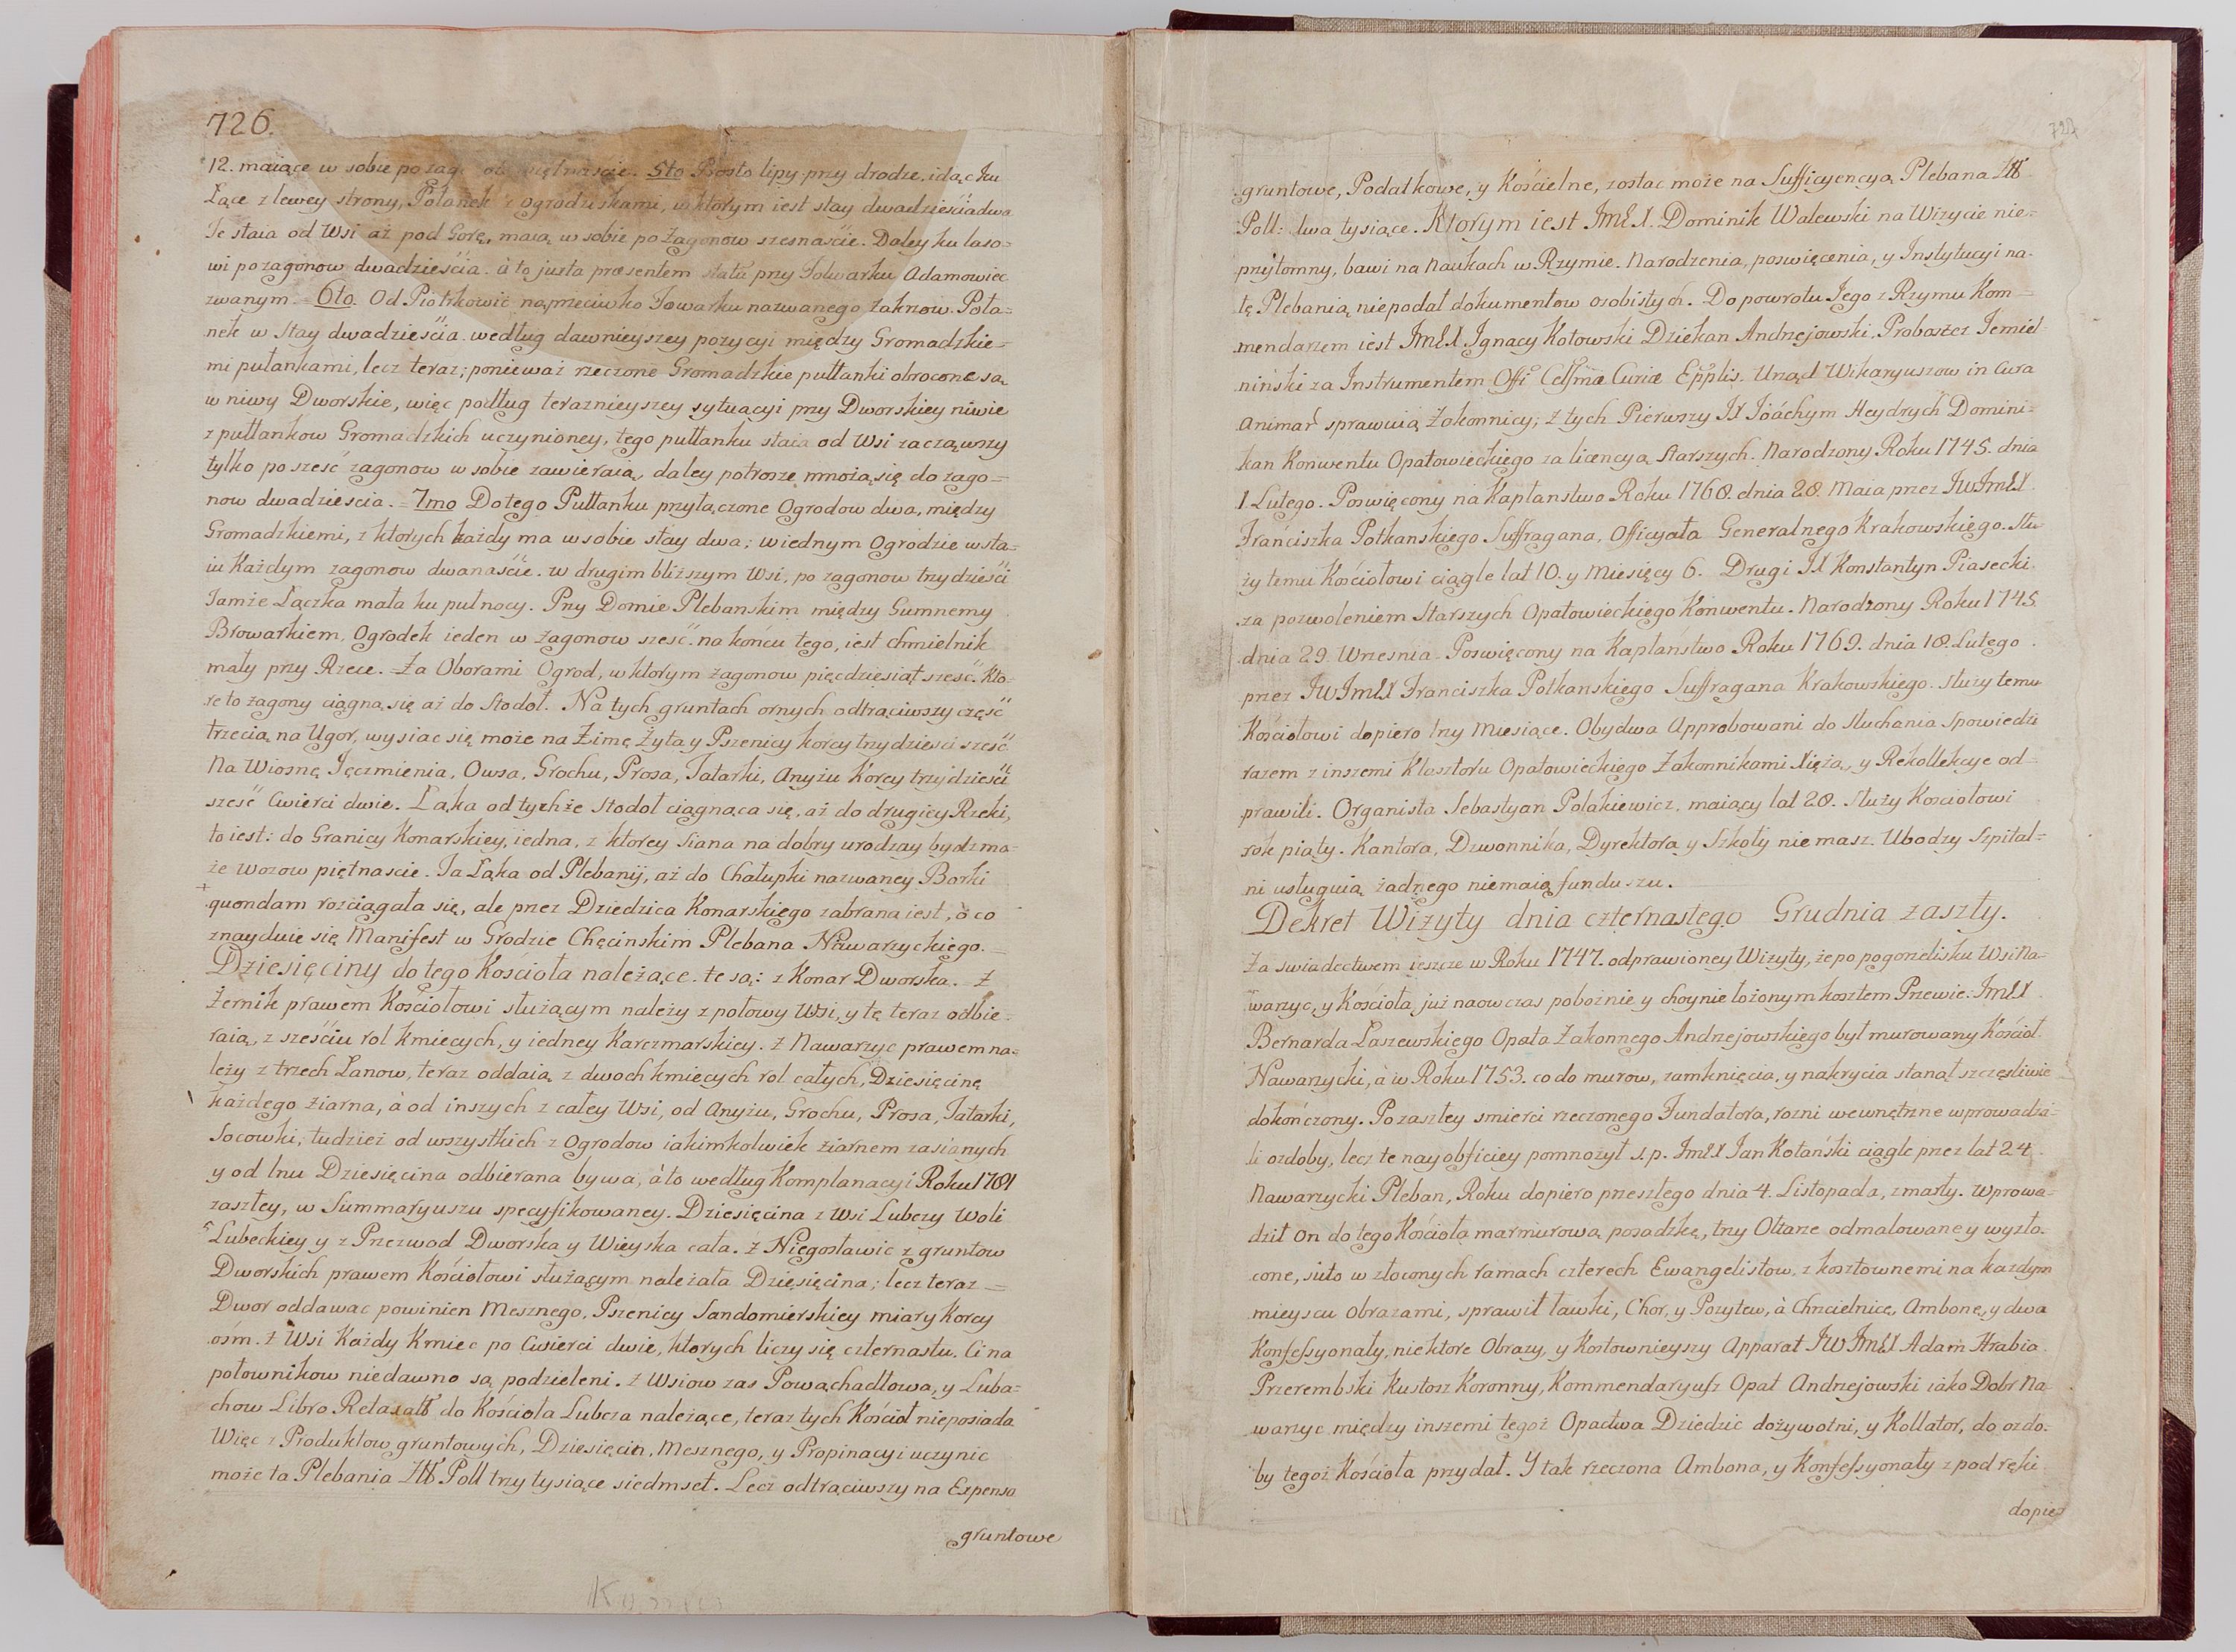 726.
12. maiące w sobie po zago piętnaście. 5to Prosto lipy przy drodze, idąc ku
Łące z lewey strony, Połanek z ogrodziskami, w ktorym iest stay dwadzieścia dwa
Te staia od Wsi aż pod Gorę, maią w sobie po Zagonow szesnaście. Daley ku laso=
wi po zagonow dwadzieścia. à to juxta præsentem statū przy Folwarku Adamowiec
zwanym. = 6to. Od Piotrkowic naprzeciwko Fowarku nazwanego Zakrzow. Poła=
nek w Stay dwadzieścia według dawnieyszey pozycyi między Gromadzkie=
mi pułankami, lecz teraz; ponieważ rzeczone Gromadzkie pułłanki obrocone są
w niwy Dworskie, więc podług teraznieyszey sytuacyi przy Dworskiey niwie
z pułłankow Gromadzkich uczynioney, tego pułłanku staia od Wsi zacząwszy
tylko po sześć zagonow w sobie zawieraią, daley potrosze mnożą się do zago=
now dwadziescia. = 7mo Do tego Pułłanku przyłączone Ogrodow dwa, między
Gromadzkiemi, z ktorych każdy ma w sobie stay dwa; w iednym Ogrodzie w sta=
iu Każdym zagonow dwanaście. w drugim bliższym Wsi, po zagonow trzydzieści
Tamże Łączka mała ku pułnocy. Przy Domie Plebanskim między Gumnem y
Browarkiem, Ogrodek ieden w zagonow sześć. na końcu tego, iest chmielnik
mały przy Rzece. = Za Oborami Ogrod, w ktorym zagonow pięcdziesiąt sześć. Kto=
re to zagony ciągną się aż do Stodoł. Na tych gruntach ornych odtrąciwszy część
trzecią na Ugor, wysiac się może na Zimę Żyta y Pszenicy korcy trzydziesci sześć
Na Wiosnę Jęczmienia, Owsa, Grochu, Prosa, Tatarki, Anyżu Korcy trzydzieści
sześć Cwierci dwie. Łąka od tychże Stodoł ciągnąca się, aż do drugiey Rzeki,
to iest: do Granicy Konarskiey, iedna, z ktorey Siana na dobry urodzay bydz mo=
że wozow piętnascie. Ta Łąka od Plebanij, aż do Chałupki nazwaney Borki
+
quondam rozciągała się, ale przez Dziedzica Konarskiego zabrana iest, o co
znayduie się Manifest w Grodzie Chęcinskim Plebana Nawarzyckiego. =
Dziesięciny do tego Kościoła należące. te są: z Konar Dworska. Z
Żernik prawem Kościołowi służącym należy z połowy Wsi, y tę teraz odbie=
raią, z sześciu rol kmiecych, y iedney Karczmarskiey. Z Nawarzyc prawem na=
leży z trzech Łanow, teraz oddaią z dwoch kmiecych rol całych, Dziesięcinę
każdego ziarna, à od inszych z całey Wsi, od Anyżu, Grochu, Prosa, Tatarki,
Socowki, tudzież od wszystkich z Ogrodow iakimkolwiek ziarnem zasianych
y od lnu Dziesięcina odbierana bywa, à to według Komplanacyi Roku 1781
zaszłey, w Summaryuszu specyfikowaney. Dziesięcina z Wsi Lubczy Woli
Lubeckiey y z Przezwod Dworska y Wieyska cała. Z Niegosławic z gruntow
Dworskich prawem Kościołowi służącym należała Dziesięcina; lecz teraz =
Dwor oddawac powinien Mesznego, Pszenicy Sandomierskiey miary Korcy
ośm. Z Wsi Każdy Kmiec po Cwierci dwie, ktorych liczy się czternastu. Ci na
połownikow niedawno są podzieleni. Z Wsiow zas Powąchadłowa, y Luba=
chow Libro Retaxatꝭ do Kościoła Lubcza należące, teraz tych Kościoł nieposiada
Więc z Produktow gruntowych, Dziesięcin, Mesznego, y Propinacyi uczynic
może ta Plebania Złł Poll trzy tysiące siedmset. Lecz odtrąciwszy na Expensa
gruntowe
727
gruntowe, Podatkowe, y Kościelne, zostac może na Sufficyencyą Plebana Złł
Poll: dwa tysiące. Ktorym iest JmX. Dominik Walewski na Wizycie nie=
przytomny, bawi na Naukach w Rzymie. Narodzenia, poswięcenia, y Instytucyi na
tę Plebanią niepodał dokumentow osobistych. Do powrotu Jego z Rzymu Kom=
mendarzem iest JmX Ignacy Kotowski Dziekan Andrzejowski, Proboszcz Jemiel
niński za Instrumentem Offi Celsmæ Curiæ Epplis. Urząd Wikaryuszow in Cura
Animar sprawuią Zakonnicy; Z tych Pierwszy JX Joáchym Heydrych Domini=
kan Konwentu Opatowieckiego za licencyą Starszych. Narodzony Roku 1745. dnia
1. Lutego. Poswięcony na Kapłanstwo Roku 1768. dnia 28. Maia przez JWJmX
Franciszka Potkanskiego Suffragana, Officyała Generalnego Krakowskiego. Słu
ży temu Kościołowi ciągle lat 10. y Miesięcy 6. Drugi JX Konstantyn Piasecki
za pozwoleniem Starszych Opatowieckiego Konwentu. Narodzony Roku 1745.
dnia 29. Wrzesnia. Poswięcony na Kapłaństwo Roku 1769. dnia 18. Lutego
przez JWJmX Franciszka Potkanskiego Suffragana Krakowskiego. Służy temu
Kościołowi dopiero trzy Miesiące. Obydwa Approbowani do słuchania Spowiedzi
razem z inszemi Klasztoru Opatowieckiego Zakonnikami Xięża, y Rekollekcye od=
prawili. Organista Sebastyan Polakiewicz, maiący lat 28. Służy Kosciołowi
rok piąty. Kantora, Dzwonnika, Dyrektora y Szkoły nie masz. Ubodzy Szpital=
ni usługuią żadnego niemaią funduszu.
Dekret Wizyty dnia czternastego Grudnia zaszły.
Za swiadectwem ieszcze w Roku 1747. odprawioney Wizyty, że po pogorzelisku Wsi Na=
warzyc, y Kościoła już naow czas pobożnie y choynie łożonym kosztem Przewie: JmX
Bernarda Łaszewskiego Opata Zakonnego Andrzejowskiego był murowany Kościoł
Nawarzycki, à w Roku 1753. co do murow, zamknięcia, y nakrycia stanął szczęsliwie
dokończony. Po zaszłey smierci rzeczonego Fundatora, rozni wewnętrzne wprowadzi=
li ozdoby, lecz te nayobficiey pomnożył s.p. JmX Jan Kotański ciągle przez lat 24
Nawarzycki Pleban, Roku dopiero przeszłego dnia 4. Listopada, zmarły. Wprowa=
dził On do tego Kościoła marmurową posadzkę, trzy Ołtarze odmalowane y wyzło=
cone, suto w złoconych ramach czterech Ewangelistow, z kosztownemi na każdym
mieyscu obrazami, sprawił ławki, Chor, y Pozytew, à Chrzcielnicę, Ambonę, y dwa
Konfessyonały, niektore Obrazy, y Kosztownieyszy Apparat JWJmX Adam Hrabia
Przerembski Kustosz Koronny, Kommendaryusz Opat Andrzejowski iako Dobr Na
warzyc między inszemi tegoż Opactwa Dziedzic dożywotni, y Kollator, do ozdo=
by tegoż Kościoła przydał. Y tak rzeczona Ambona, y Konfessyonały z pod ręki
dopie